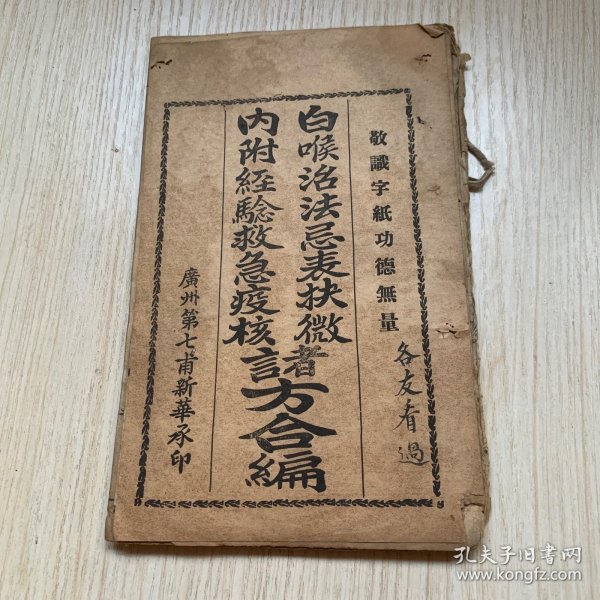 敬識字紙功德無量
各友看過
白喉治法忌表抉微
內附經驗救急疫核諸方合編
廣州第七甫新華承印
孔夫子旧书网
www.kongfz.com